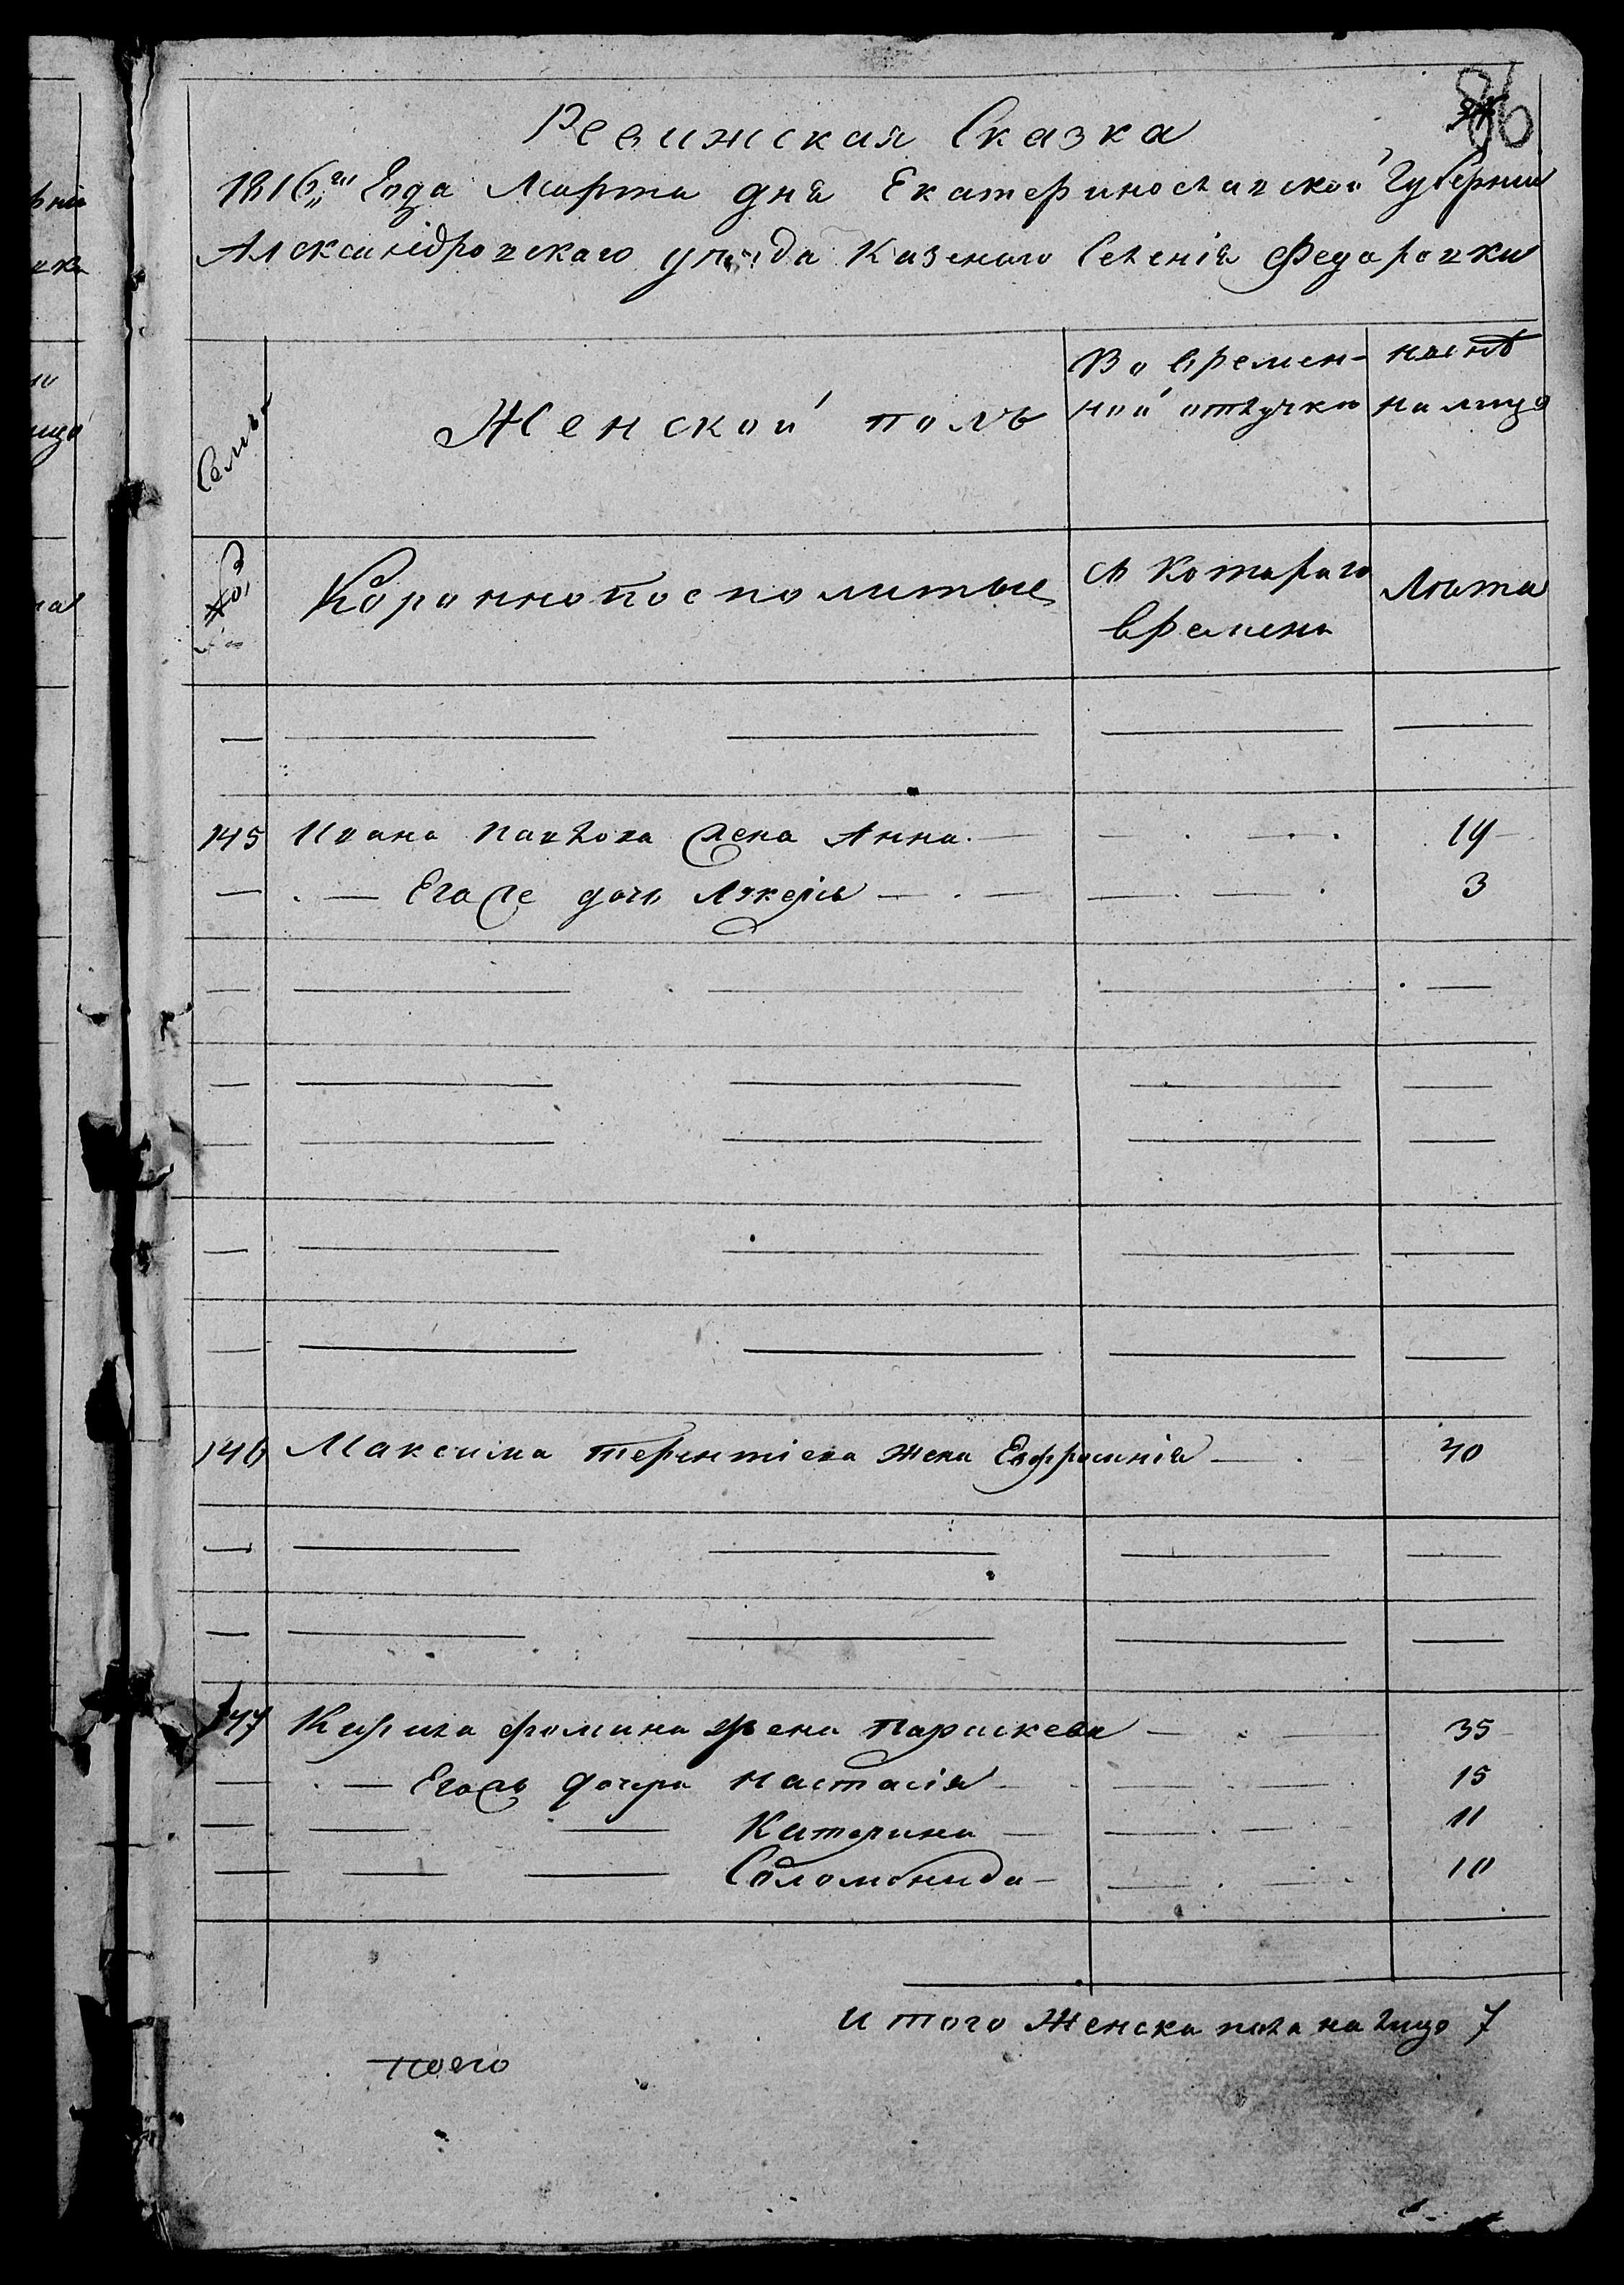 86
Ревижская Сказка
1816го Года Марта дня Екатеринославской Губернии
Александровскаго уезда Казеннаго Селенія Федаровки
Семьи
Женской полъ
Во времен-
ной отлучки
ныне
на лицо
№
Короннопосполитые
съ котораго
времени
Лета
145 Ивана Павлова жена Анна 19
Его же дочь Лукерія 3
146 Максима Терентіева жена Евфросинія 40
147 Кирила Фомина жена Параскева 35
Его жъ дочери Настасія 15
Катерина 11
Соломонида 10
Итого Женска пола на лицо 7